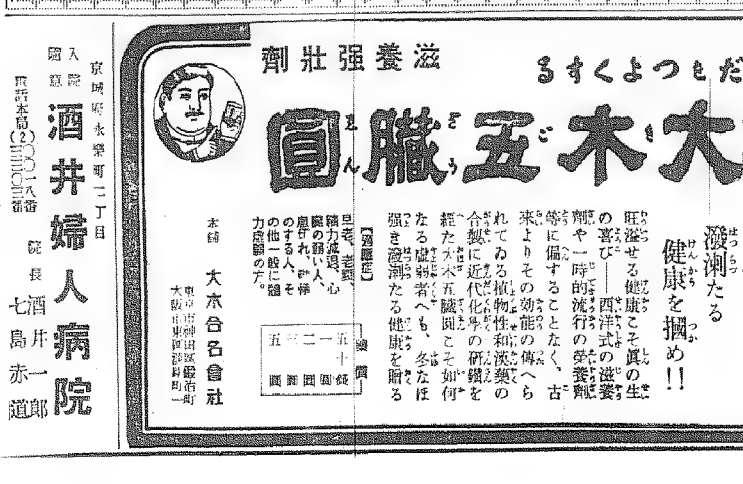 だをつよくする
滋養强壯劑
大木五臓圓
潑溂たる
健康を摑め!!
旺溢せる健康こそ眞の生
の喜び──西洋式の滋養
劑や一時的流行の榮養劑
等に偏することなく、古
來よりその効能の傳へら
れてゐる植物性和漢藥の
合製に近代化學の研鑽を
經た大木五臓圓こそ如何
なる虚弱者へも、冬なほ
强き潑溂たる健康を贈る
【適應症】
精力減退、心
臓の弱い人、
のする人、そ
の他一般に
力虚弱の方。
藥價
五十錢
一圓
二圓
三圓
五圓
本舗 大木合名會社
東京市神田區鍛冶町
大阪市東區
京城府永樂町二丁目
入院隨意 酒井婦人病院
院長 酒井一郎
七島赤道
電話本局(2)